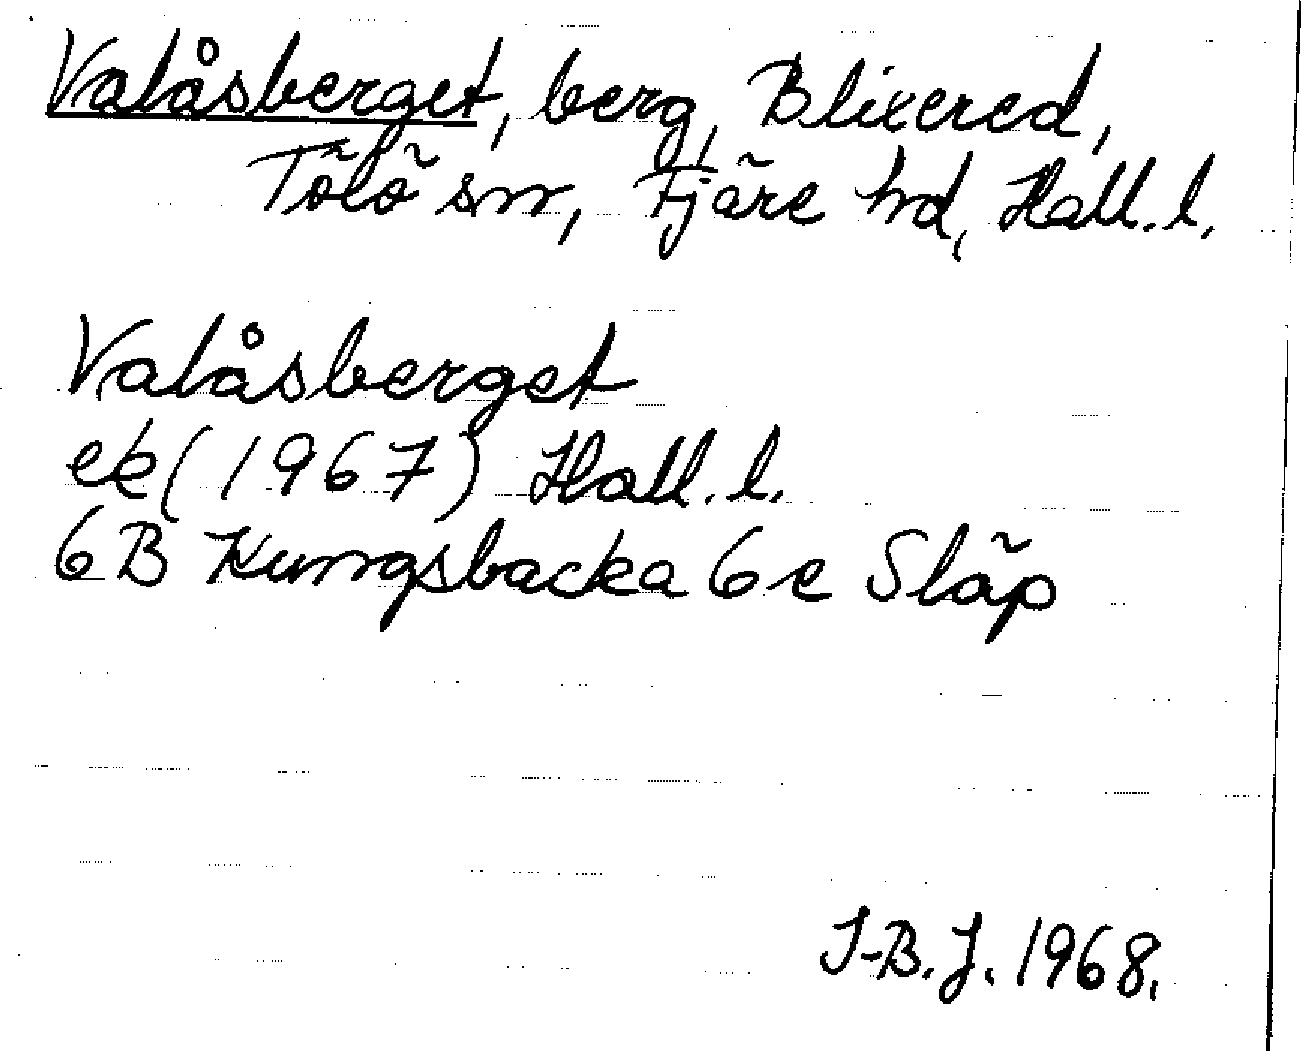 Valåsberget, berg, Blixered,
Tölö sn, Fjäre hd, Hall. l.
Valåsberget
ek (1967) Hall. l.
6B Kungsbacka 6e Släp
I-B. J. 1968.